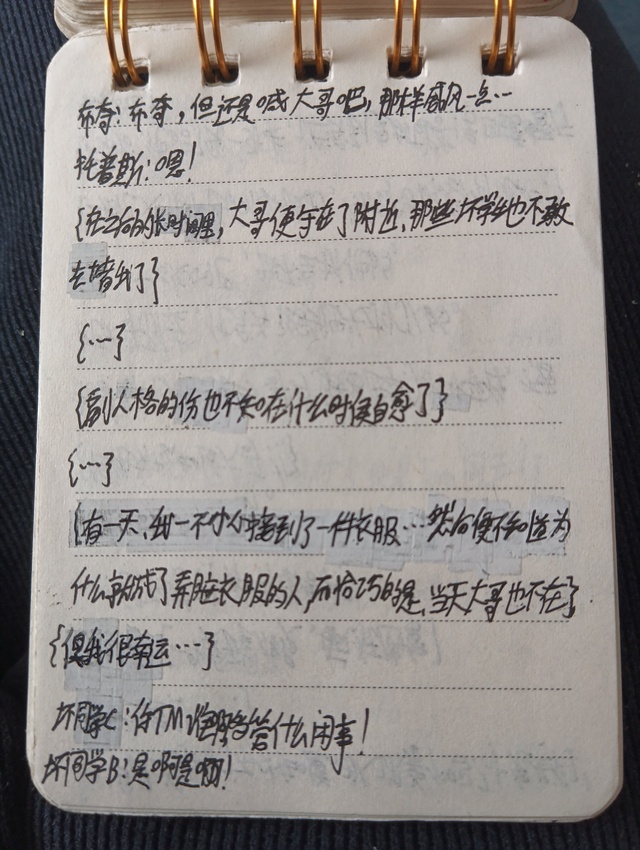 布奇:布奇,但还是喊大哥吧,那样威风一点…
托普斯:嗯!
{在之后的长时间里,大哥便守在了附近,那些坏学生也不敢
去堵我了}
{…}
{副人格的伤也不知在什么时候自愈了}
{…}
{有一天,我一不小心撞到了一件衣服…然后便不知道为
什么就成了弄脏衣服的人,而恰巧的是,当天大哥也不在}
{但我很幸运…}
坏同学C:你TM谁啊 管什么闲事!
坏同学B:是啊是啊!